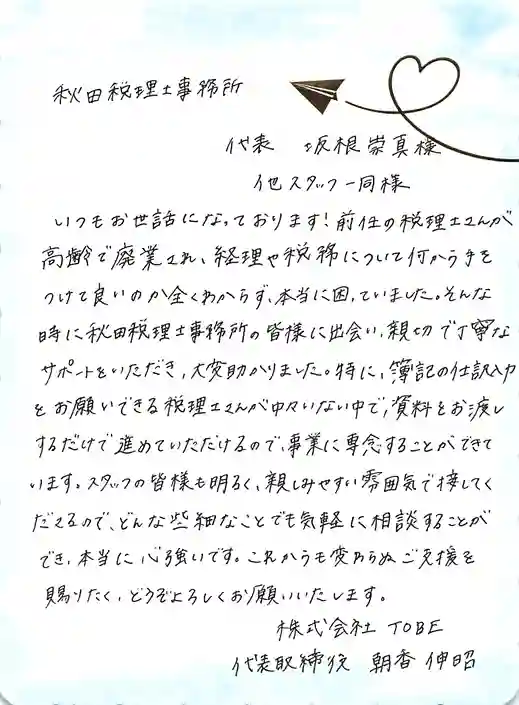 秋田税理士事務所
代表 坂根崇真様
他スタッフ一同様
いつもお世話になっております!前任の税理士さんが
高齢で廃業され、経理や税務について何から手を
つけて良いのか全くわからず、本当に困っていました。そんな
時に秋田税理士事務所の皆様に出会い、親切で丁寧な
サポートをいただき、大変助かりました。特に、簿記の仕訳入力
をお願いできる税理士さんが中々いない中で、資料をお渡し
するだけで進めていただけるので、事業に専念することができて
います。スタッフの皆様も明るく、親しみやすい雰囲気で接してく
ださるので、どんな些細なことでも気軽に相談することが
でき、本当に心強いです。これからも変わらぬご支援を
賜りたく、どうぞよろしくお願いいたします。
株式会社 TOBE
代表取締役 朝香 伸昭